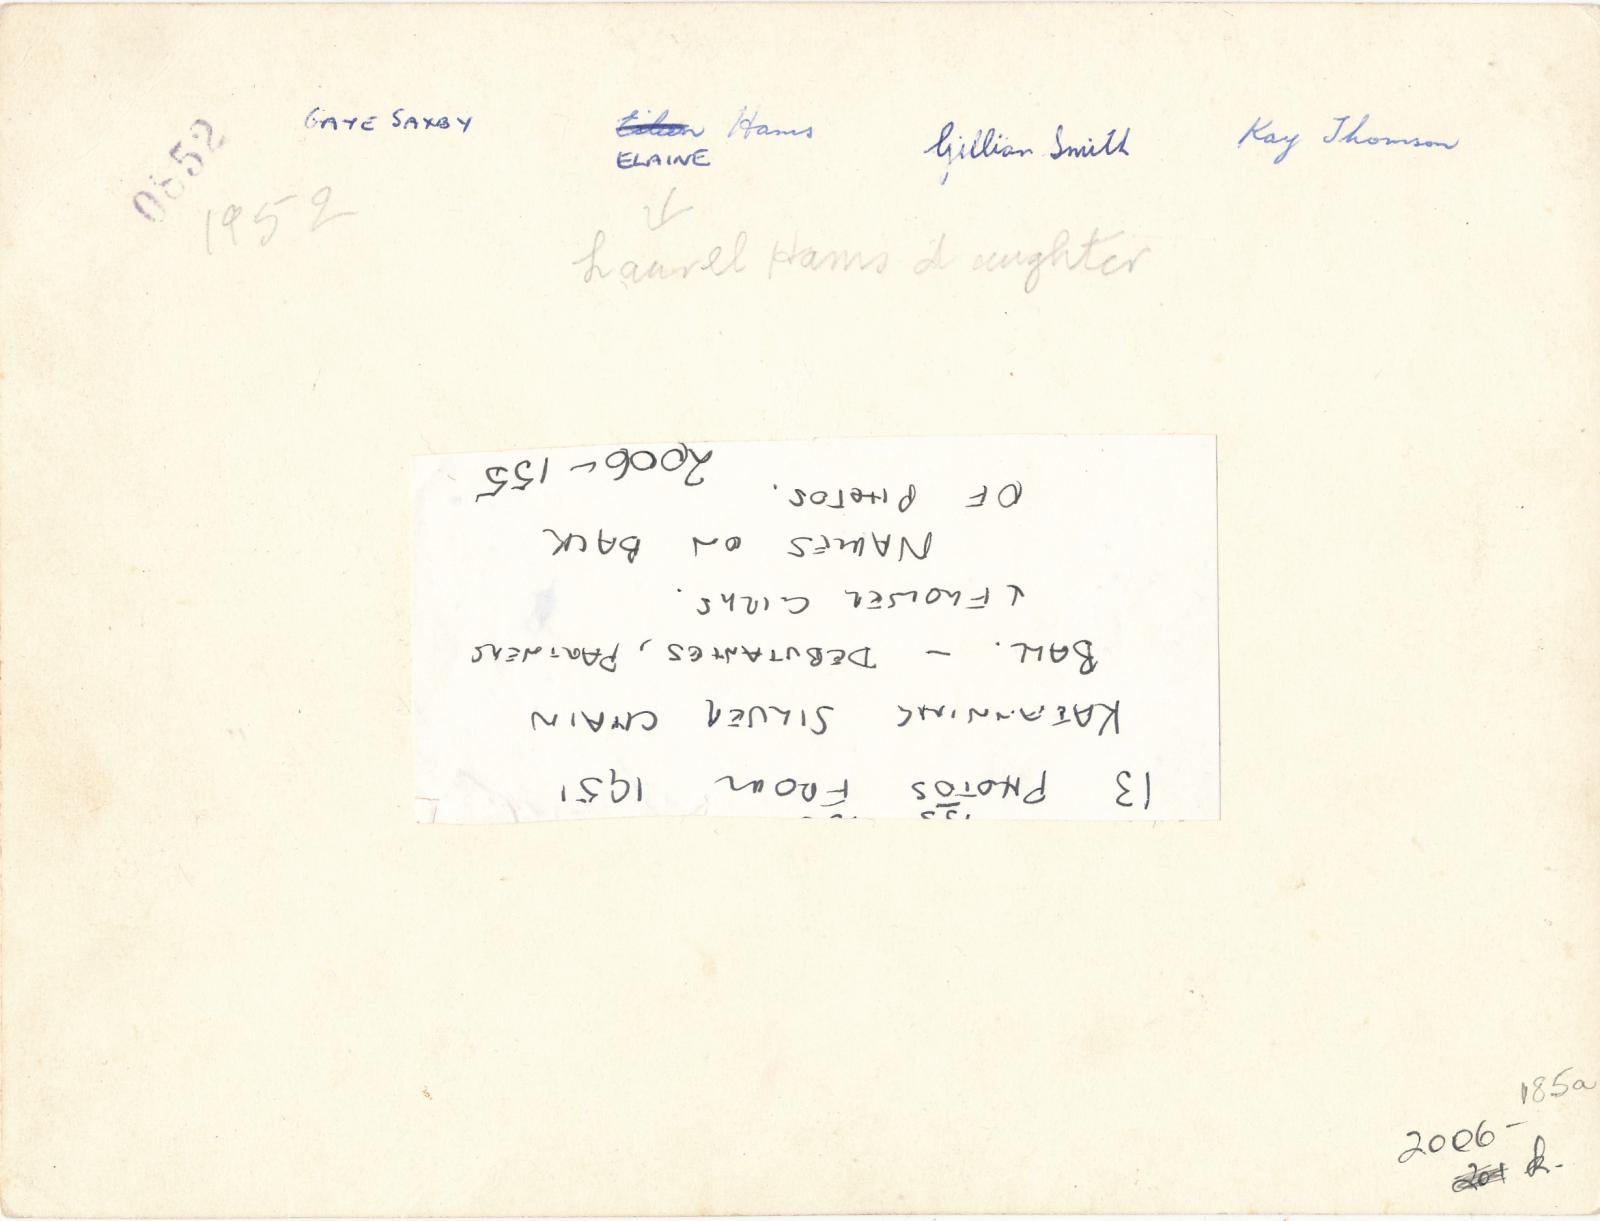 GAYE SAXBY
Eileen Hams
ELAINE
Gillian Smith
Kay Thomson
0852
1952
Laurel Hams daughter
13 PHOTOS FROM 1951
KATANNING SILVER CHAIN
BALL. - DEBUTANTES, PARTNERS
& FLOWER GIRLS.
NAMES ON BACK
OF PHOTOS.
2006-155
185a
2006-
201 k.